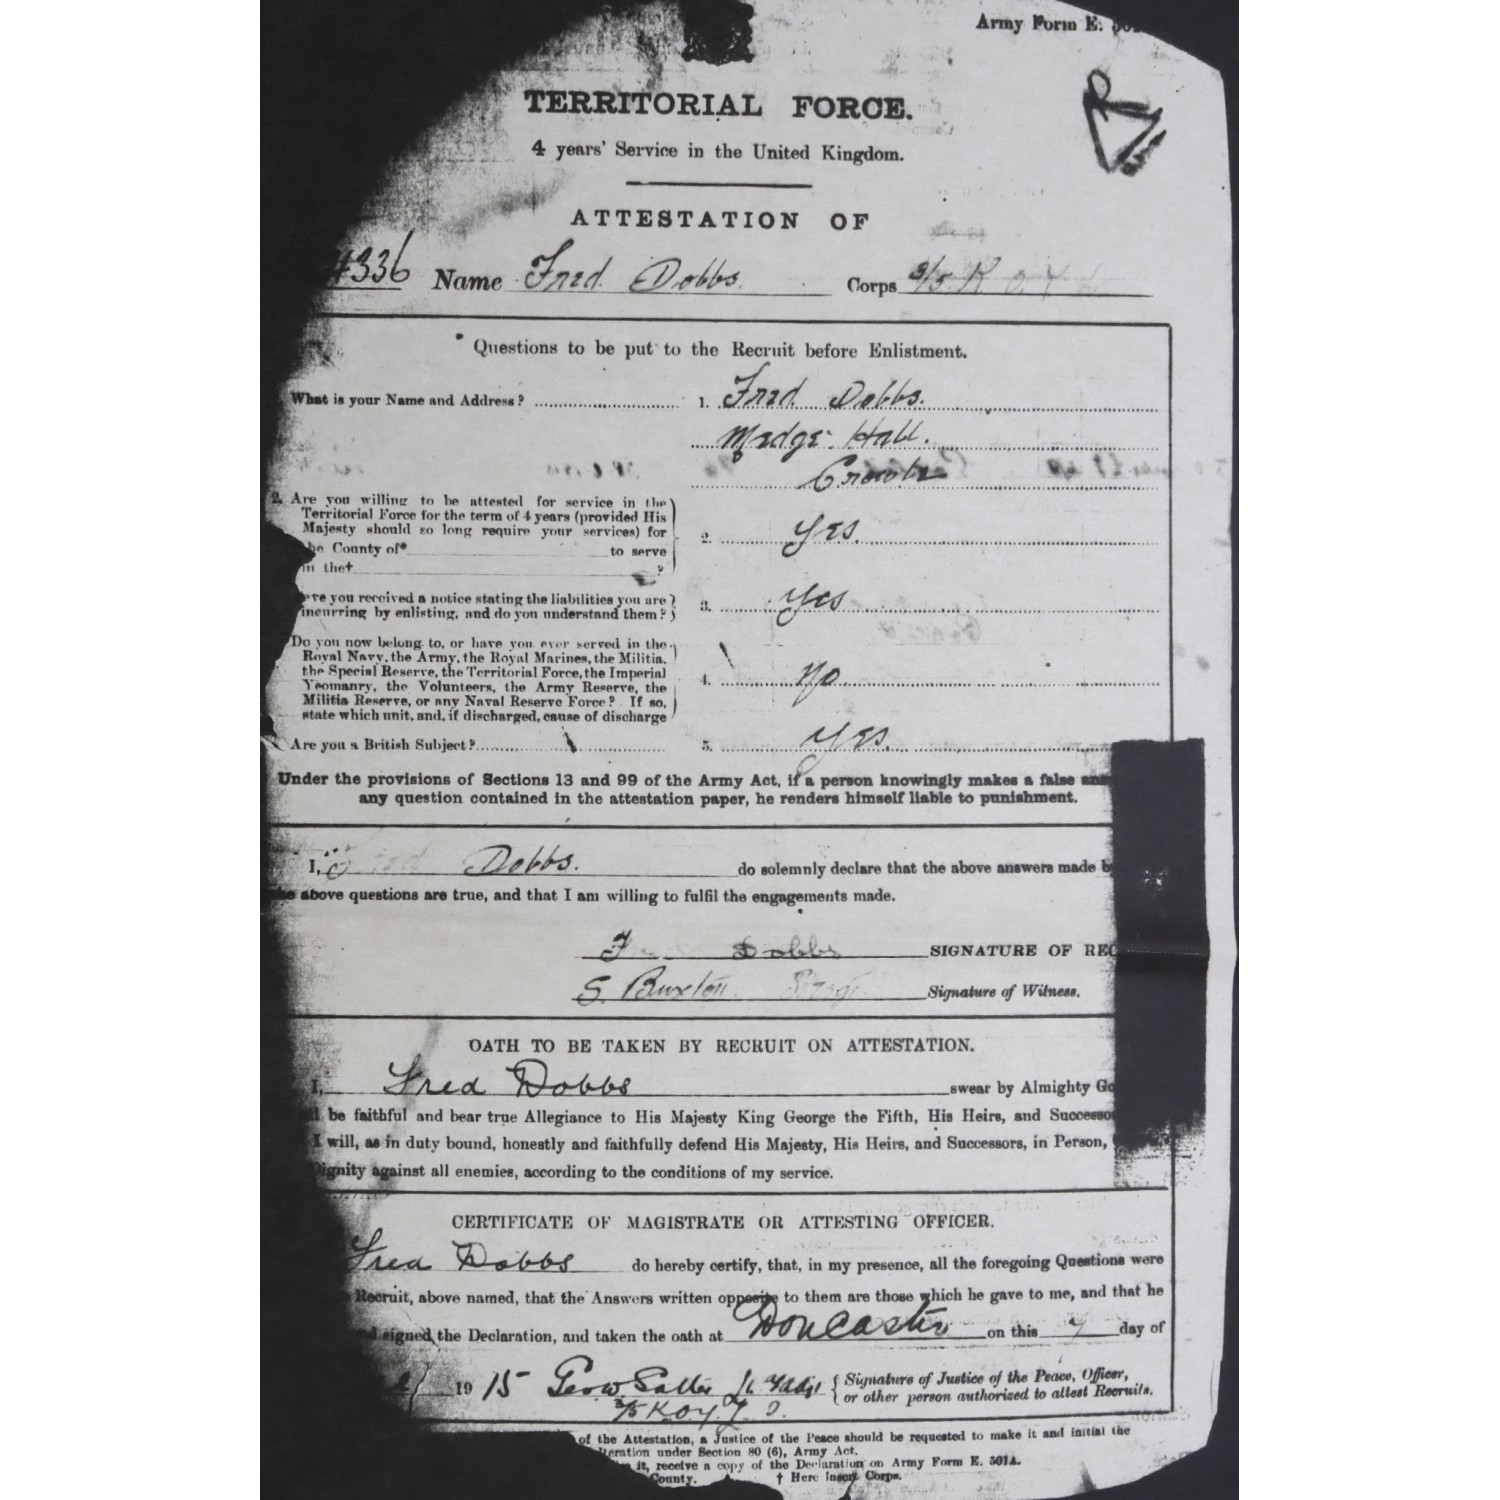 Army Form E.
TERRITORIAL FORCE.
4 years' Service in the United Kingdom.
ATTESTATION OF
4336 Name Fred Dobbs. Corps 3/5 K O Y
Questions to be put to the Recruit before Enlistment.
What is your Name and Address? 1. Fred Dobbs.
Medge Hall.
Crowle
2. Are you willing to be attested for service in the
Territorial Force for the term of 4 years (provided His
Majesty should so long require your services) for 2. Yes.
the County of* to serve
in the† ?
you received a notice stating the liabilities you are
incurring by enlisting, and do you understand them? 3. Yes
Do you now belong to, or have you ever served in the
Royal Navy, the Army, the Royal Marines, the Militia,
the Special Reserve, the Territorial Force, the Imperial
Yeomanry, the Volunteers, the Army Reserve, the 4. No
Militia Reserve, or any Naval Reserve Force? If so,
state which unit, and, if discharged, cause of discharge
Are you a British Subject? 5. Yes.
Under the provisions of Sections 13 and 99 of the Army Act, if a person knowingly makes a false
any question contained in the attestation paper, he renders himself liable to punishment.
I, Fred Dobbs. do solemnly declare that the above answers made
the above questions are true, and that I am willing to fulfil the engagements made.
F Dobbs SIGNATURE OF REC
S. Buxton Signature of Witness.
OATH TO BE TAKEN BY RECRUIT ON ATTESTATION.
I, Fred Dobbs swear by Almighty Go
be faithful and bear true Allegiance to His Majesty King George the Fifth, His Heirs, and Successo
I will, as in duty bound, honestly and faithfully defend His Majesty, His Heirs, and Successors, in Person,
Dignity against all enemies, according to the conditions of my service.
CERTIFICATE OF MAGISTRATE OR ATTESTING OFFICER.
Fred Dobbs do hereby certify, that, in my presence, all the foregoing Questions were
Recruit, above named, that the Answers written opposite to them are those which he gave to me, and that he
signed the Declaration, and taken the oath at Doncaster on this 7 day of
1915 Signature of Justice of the Peace, Officer,
or other person authorized to attest Recruits.
3/5 KOY
of the Attestation, a Justice of the Peace should be requested to make it and initial the
under Section 80 (6), Army Act.
it, receive a copy of the Declaration on Army Form E. 501A.
County. † Here Insert Corps.